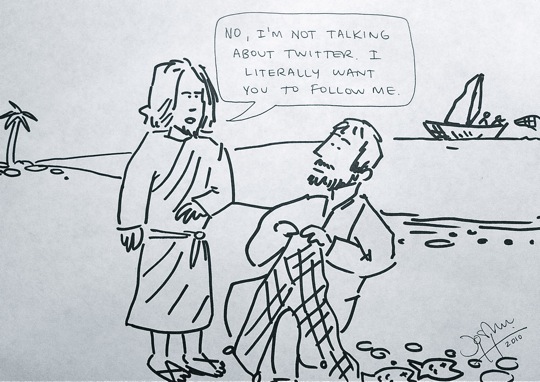 NO, I'M NOT TALKING
ABOUT TWITTER. I
LITERALLY WANT
YOU TO FOLLOW ME.
2010